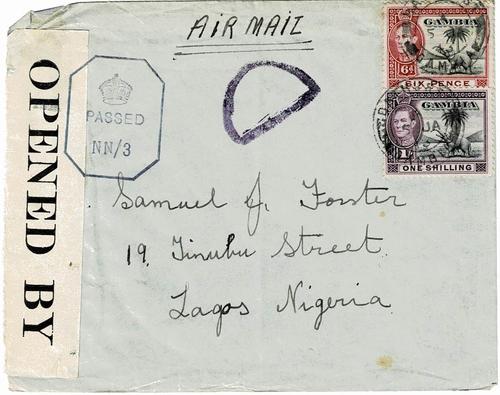 AIR MAIL
GAMBIA
6D
SIX PENCE
GAMBIA
1/-
ONE SHILLING
JA
OPENED BY
PASSED
NN/3
Samuel J. Forster
19, Tinubu Street
Lagos Nigeria